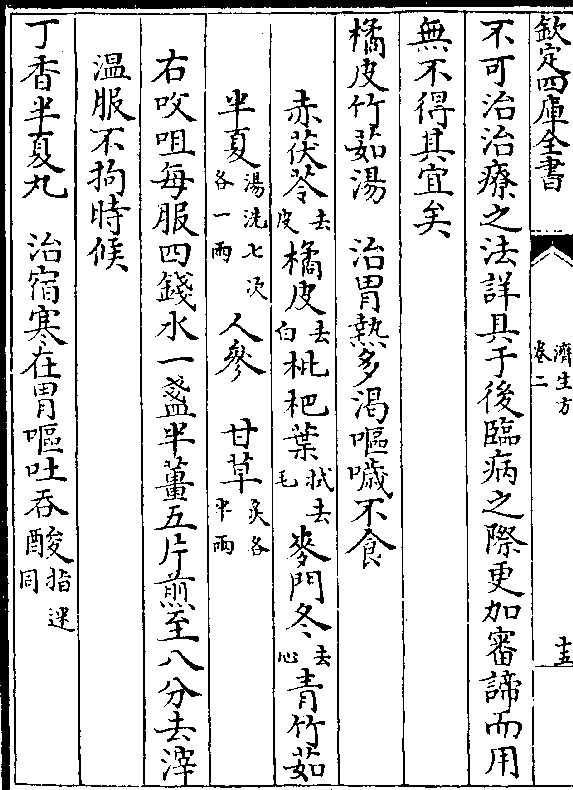 欽定四庫全書 濟生方 卷二 十五
不可治治療之法詳具于後臨病之際更加審諦而用
無不得其宜矣
橘皮竹茹湯 治胃熱多渴嘔噦不食
赤茯苓去皮 橘皮去白 枇杷葉拭去毛 麥門冬去心 青竹茹
半夏湯洗七次各一兩 人參 甘草炙各半兩
右㕮咀每服四錢水一盞半薑五片煎至八分去滓
溫服不拘時候
丁香半夏丸 治宿寒在胃嘔吐吞酸指迷同